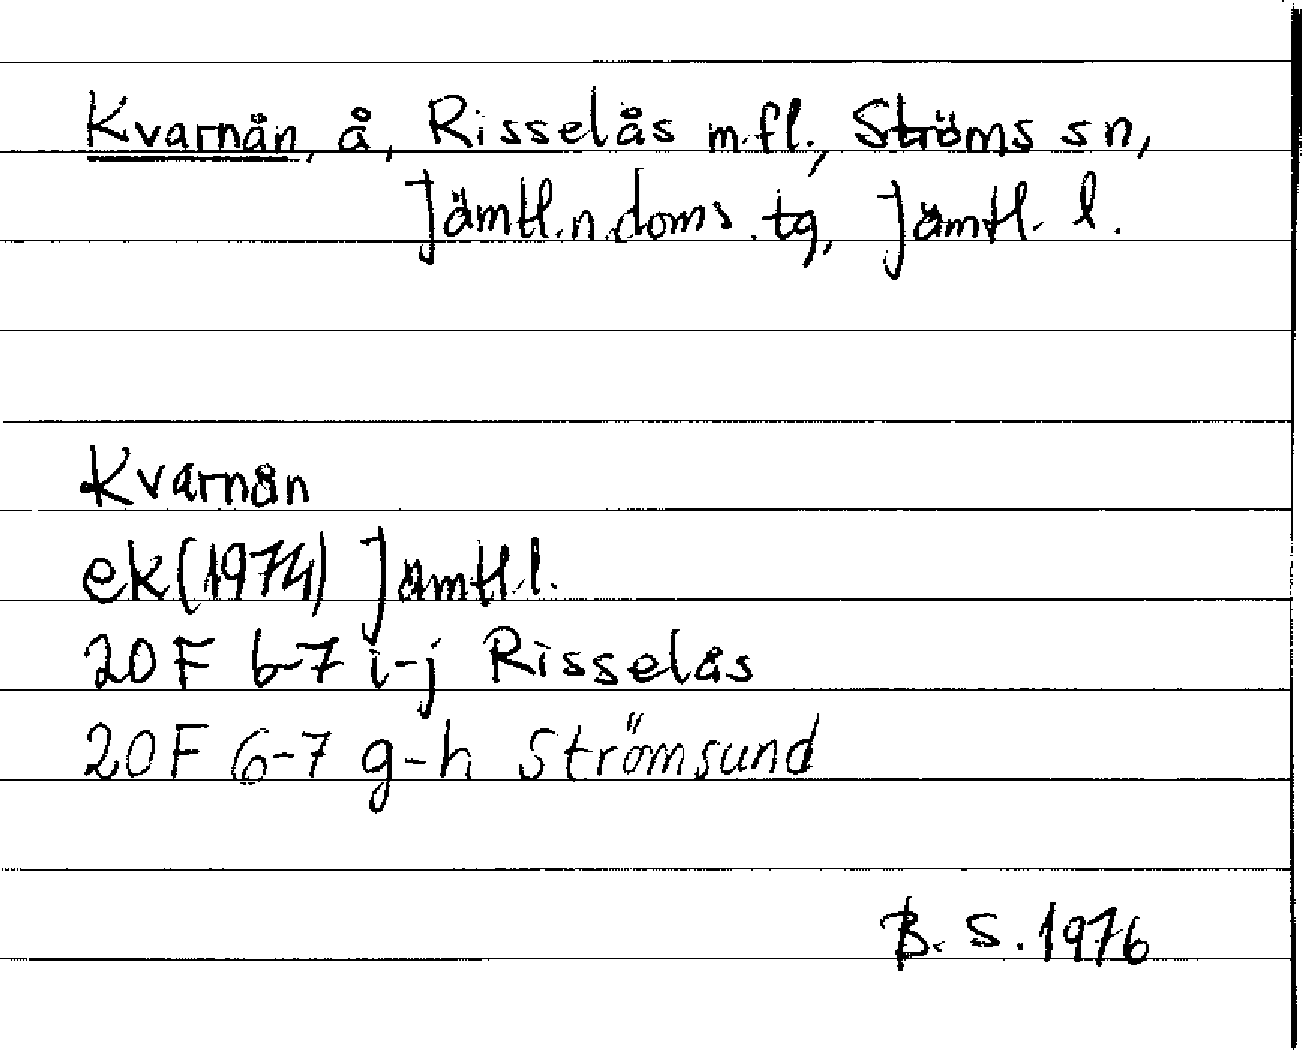 Kvarnån, å, Risselås m.fl., Ströms sn,
Jämtl.n.doms.tg, Jämtl. l.
Kvarnån
ek(1974) Jämtl.l.
20F 6-7 i-j Risselås
20F 6-7 g-h Strömsund
B.S.1976